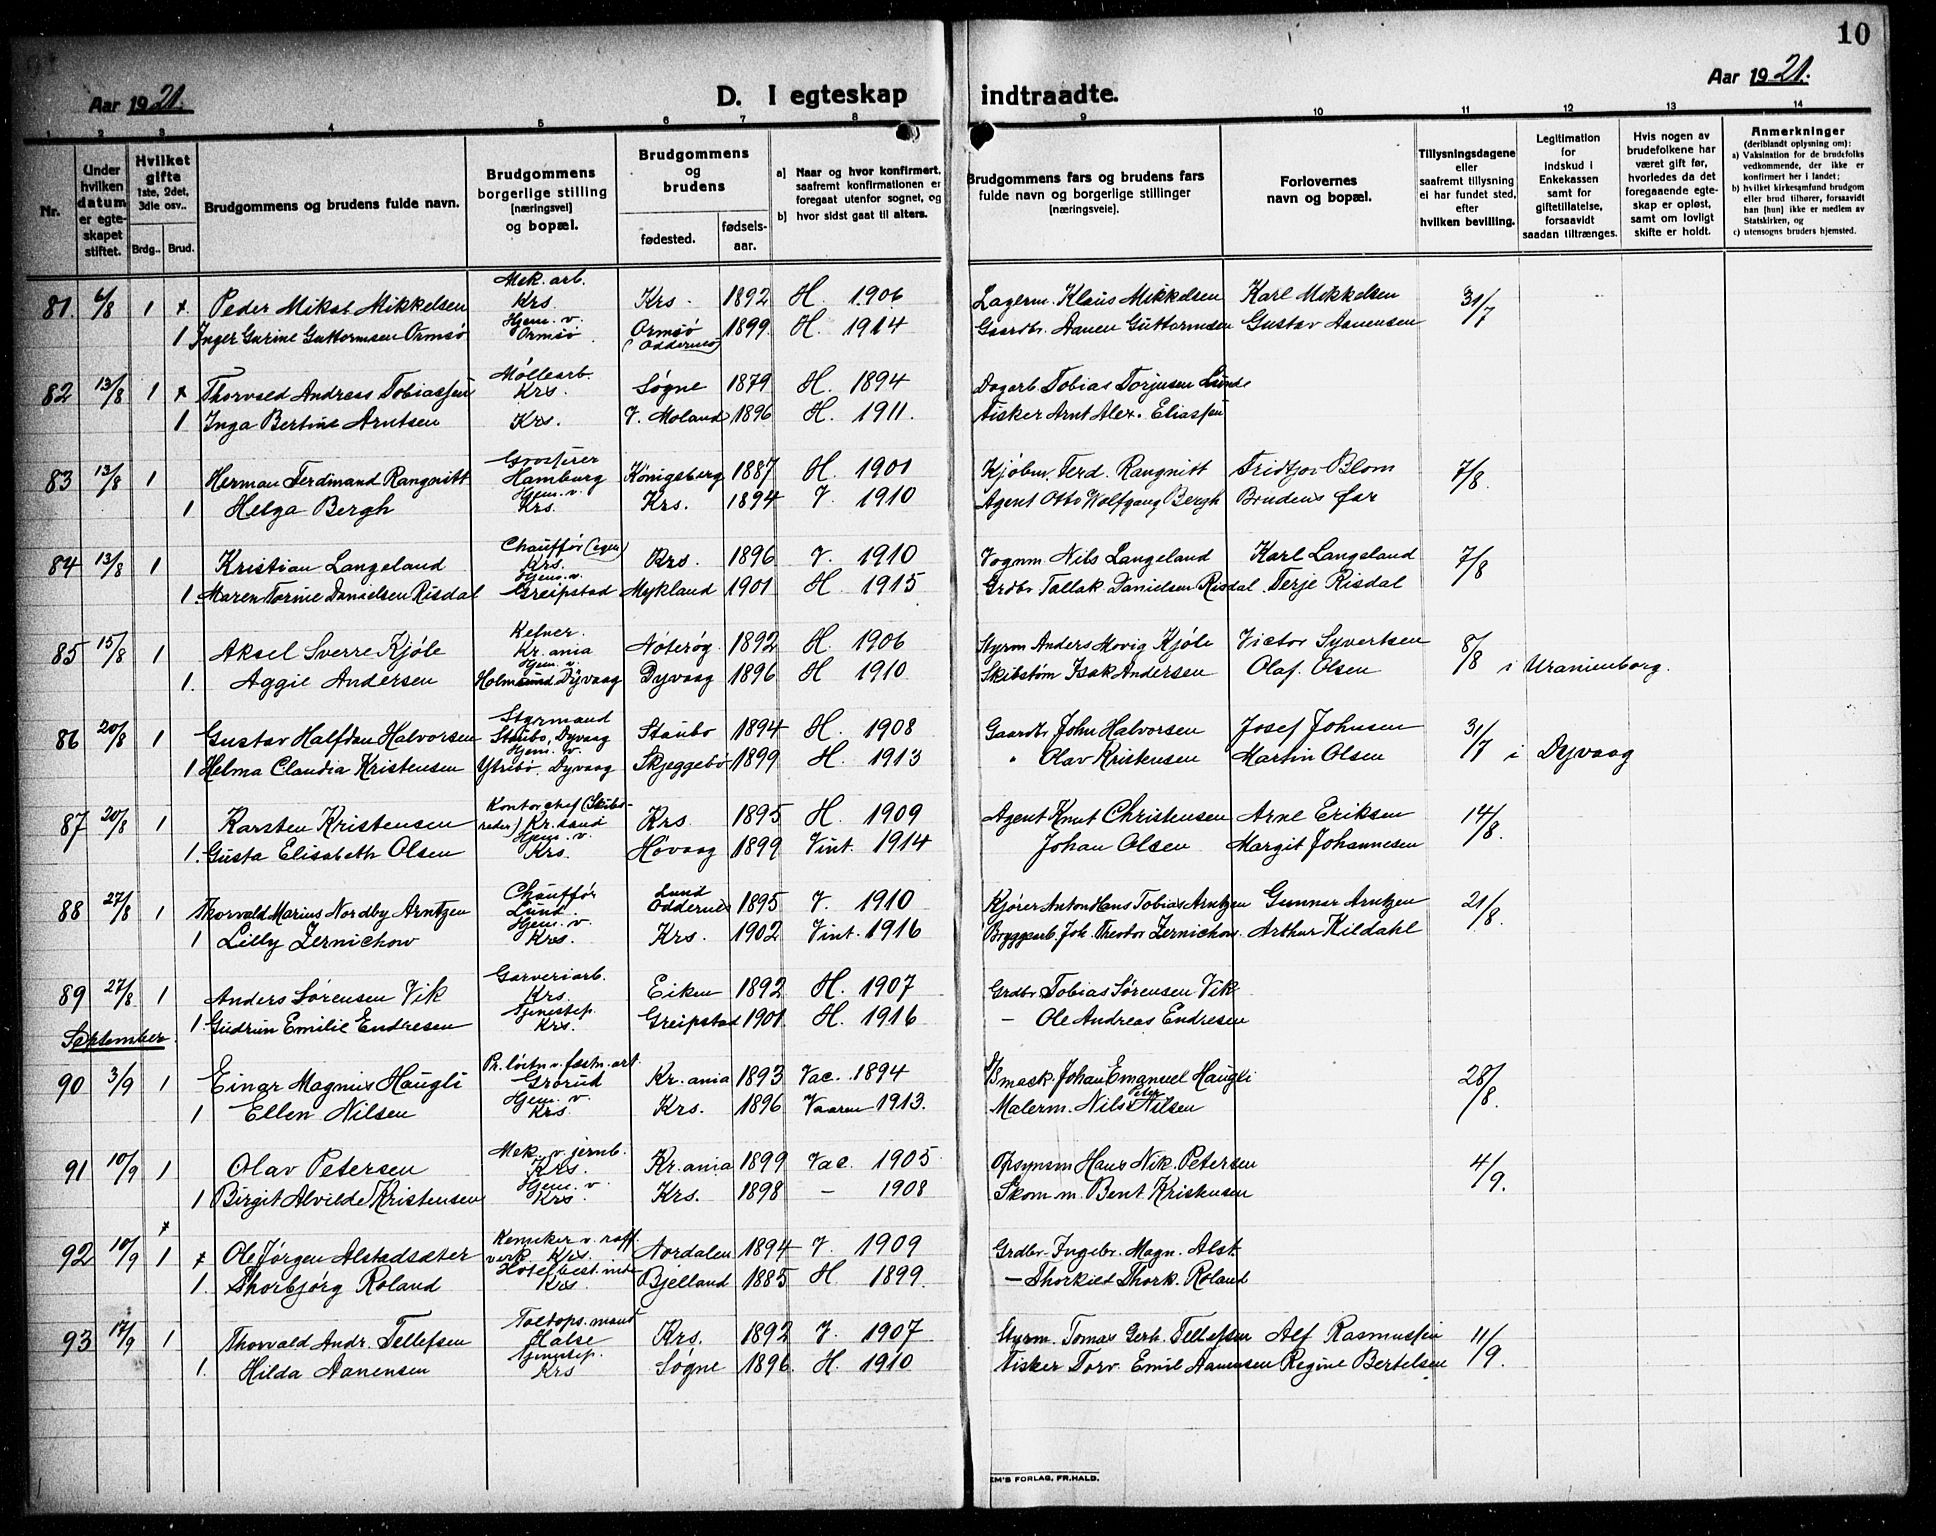 10
Aar 1921.
D. I egteskap indtraadte.
Aar 1921.
1 2 3 4 5 6 7 8 9 10 11 12 13 14
Nr.
Under hvilken datum er egteskapet stiftet.
Hvilket gifte 1ste, 2det, 3dje osv..
Brdg.. Brud.
Brudgommens og brudens fulde navn.
Brudgommens borgerlige stilling [næringsvei] og bopæl.
Brudgommens og brudens
fødested. fødselsaar.
a] Naar og hvor konfirmert, saafremt konfirmationen er foregaat utenfor sognet, og
b] hvor sidst gaat til alters.
Brudgommens fars og brudens fars fulde navn og borgerlige stillinger [næringsveie].
Forlovernes navn og bopæl.
Tillysningsdagene eller saafremt tillysning ei har fundet sted, efter hvilken bevilling.
Legitimation for indskud i Enkekassen samt for giftetillatelse, forsaavidt saadan tiltrænges.
Hvis nogen av brudefolkene har været gift før, hvorledes da det foregaaende egteskap er opløst, samt om lovligt skifte er holdt.
Anmerkninger (deriblandt oplysning om):
a) Vaksination for de brudefolks vedkommende, der ikke er konfirmert her i landet;
b) hvilket kirkesamfund brudgom eller brud tilhører, forsaavidt han [hun] ikke er medlem av Statskirken, og
c) utensogns bruders hjemsted.
81. 6/8 1 x. Peder Mikal Mikkelsen Mek. arb. Krs. Krs. 1892 H. 1906 Lagerm. Klaus Mikkelsen Karl Mikkelsen 31/7
1 Inger Gurine Guttormsen Ormsø Hjem. v. Ormsø Ormsø (Oddernes) 1899. H. 1914 Gaardbr. Aanen Guttormsen Gustav Aanensen
82 13/8 1 x Thorvald Andreas Tobiassen Møllearb. Krs. Søgne 1879 H. 1894 Dagarb. Tobias Torjusen Lunde
1 Inga Bertine Arntsen Krs. V. Moland 1896 H. 1911. Fisker Arnt Alex. Eliassen
83 13/8 1 Herman Ferdinand Rangnitt Grosserer Hamburg Königsberg 1887 H. 1901 Kjøbm. Ferd. Rangnitt Fridtjov Blom 7/8.
1 Helga Bergh Hjem. v. Krs. Krs. 1894 V. 1910 Agent Otto Wolfgang Bergh Brudens far
84 13/8 1 Kristian Langeland Chauffør (egen) Krs. Krs. 1896 V. 1910 Vognm. Nils Langeland Karl Langeland 7/8
1. Maren Tomine Danielsen Risdal Hjem. v. Greipstad Mykland 1901 H 1915 Grdbr Tallak Danielsen Risdal. Terje Risdal
85 15/8 1 Aksel Sverre Kjøle Kelner. Kr.ania Nøterøy 1892 H. 1906 Styrm Anders Movig Kjøle Victor Syvertsen 8/8 i Uranienborg.
1. Aggie Andersen Hjem. v. Holmsund Dyvaag Dyvaag 1896 H 1910. Skibstøm Isak Andersen Olaf. Olsen
86 20/8 1 Gustav Halfdan Halvorsen Styrmand Staubo, Dyvaag Staubo 1894 H. 1908 Gaardbr John Halvorsen Josef Johnsen 31/7 i Dyvaag
1 Helma Claudia Kristensen Hjem. v. Ytrebø, Dyvaag Skjeggebø 1899 H. 1913 " Olav Kristensen Martin Olsen
87 20/8 1 Karsten Kristensen Kontorchef (Skibsreder) Kr.sand Krs. 1895 H. 1909 Agent Knut Christensen Arne Eriksen 14/8.
1. Gusta Elisabeth Olsen Hjem. v. Krs. Høvaag 1899 Vint. 1914 Johan Olsen Margit Johannesen
88 27/8 1 Thorvald Marius Nordby Arntzen Chauffør Lund. Lund Oddernes 1895 V. 1910 Kjører Anton Hans Tobias Arntzen Gunnar Arntzen 21/8.
1 Lilly Zernichow Hjem. v. Krs. Krs. 1902 Vint. 1916 Bryggearb. Joh. Theodor Zernichow. Arthur Kildahl
89 27/8 1 Anders Sørensen Vik Garveriarb. Krs. Eiken 1892 H. 1907 Grdbr. Tobias Sørensen Vik
1. Gudrun Emilie Endresen Tjenestep. Krs. Greipstad 1901. H. 1916 — Ole Andreas Endresen
September.
90 3/9 1 Einar Magnus Haugli Pr. løitn. v. fæstn. art. Grorud Kr.ania 1893 Vac. 1894 Johan Emanuel Haugli 28/8.
1 Ellen Nilsen Hjem. v. Krs Krs. 1896 Vaaren 1913. Malerm. Nils Peter Nilsen
91 10/9 1 Olav Petersen Mek. v. jernb. Krs. Kr.ania 1899 Vac. 1905. Opsynsm Hans Nik. Petersen 4/9.
1 Birgit Alvilde Kristensen Hjem. v. Krs Krs. 1898 — 1908 Skom.m. Bent Kristensen
92 10/9 x 1 x Ole Jørgen Alstadsæter Kemiker v. raff. verk. Krs. Nordalen 1894 V. 1909 Grdbr. Ingebr. Magn. Alst.
1. Thorbjørg Roland Hotelbest.inde Krs. Bjelland 1885 H 1899. — Thorkild Thork. Roland
93 17/9 1 Thorvald Andr. Tellefsen Toldops.mand Halse Krs. 1892 V. 1907 Styrm. Tomas Gerh. Tellefsen Alf Rasmussen 11/9.
1. Hilda Aanensen Tjenestep. Krs Søgne 1896. H. 1910 Fisker Torv. Emil Aanensen Regine Bertelsen
EM'S FORLAG, FR.HALD.